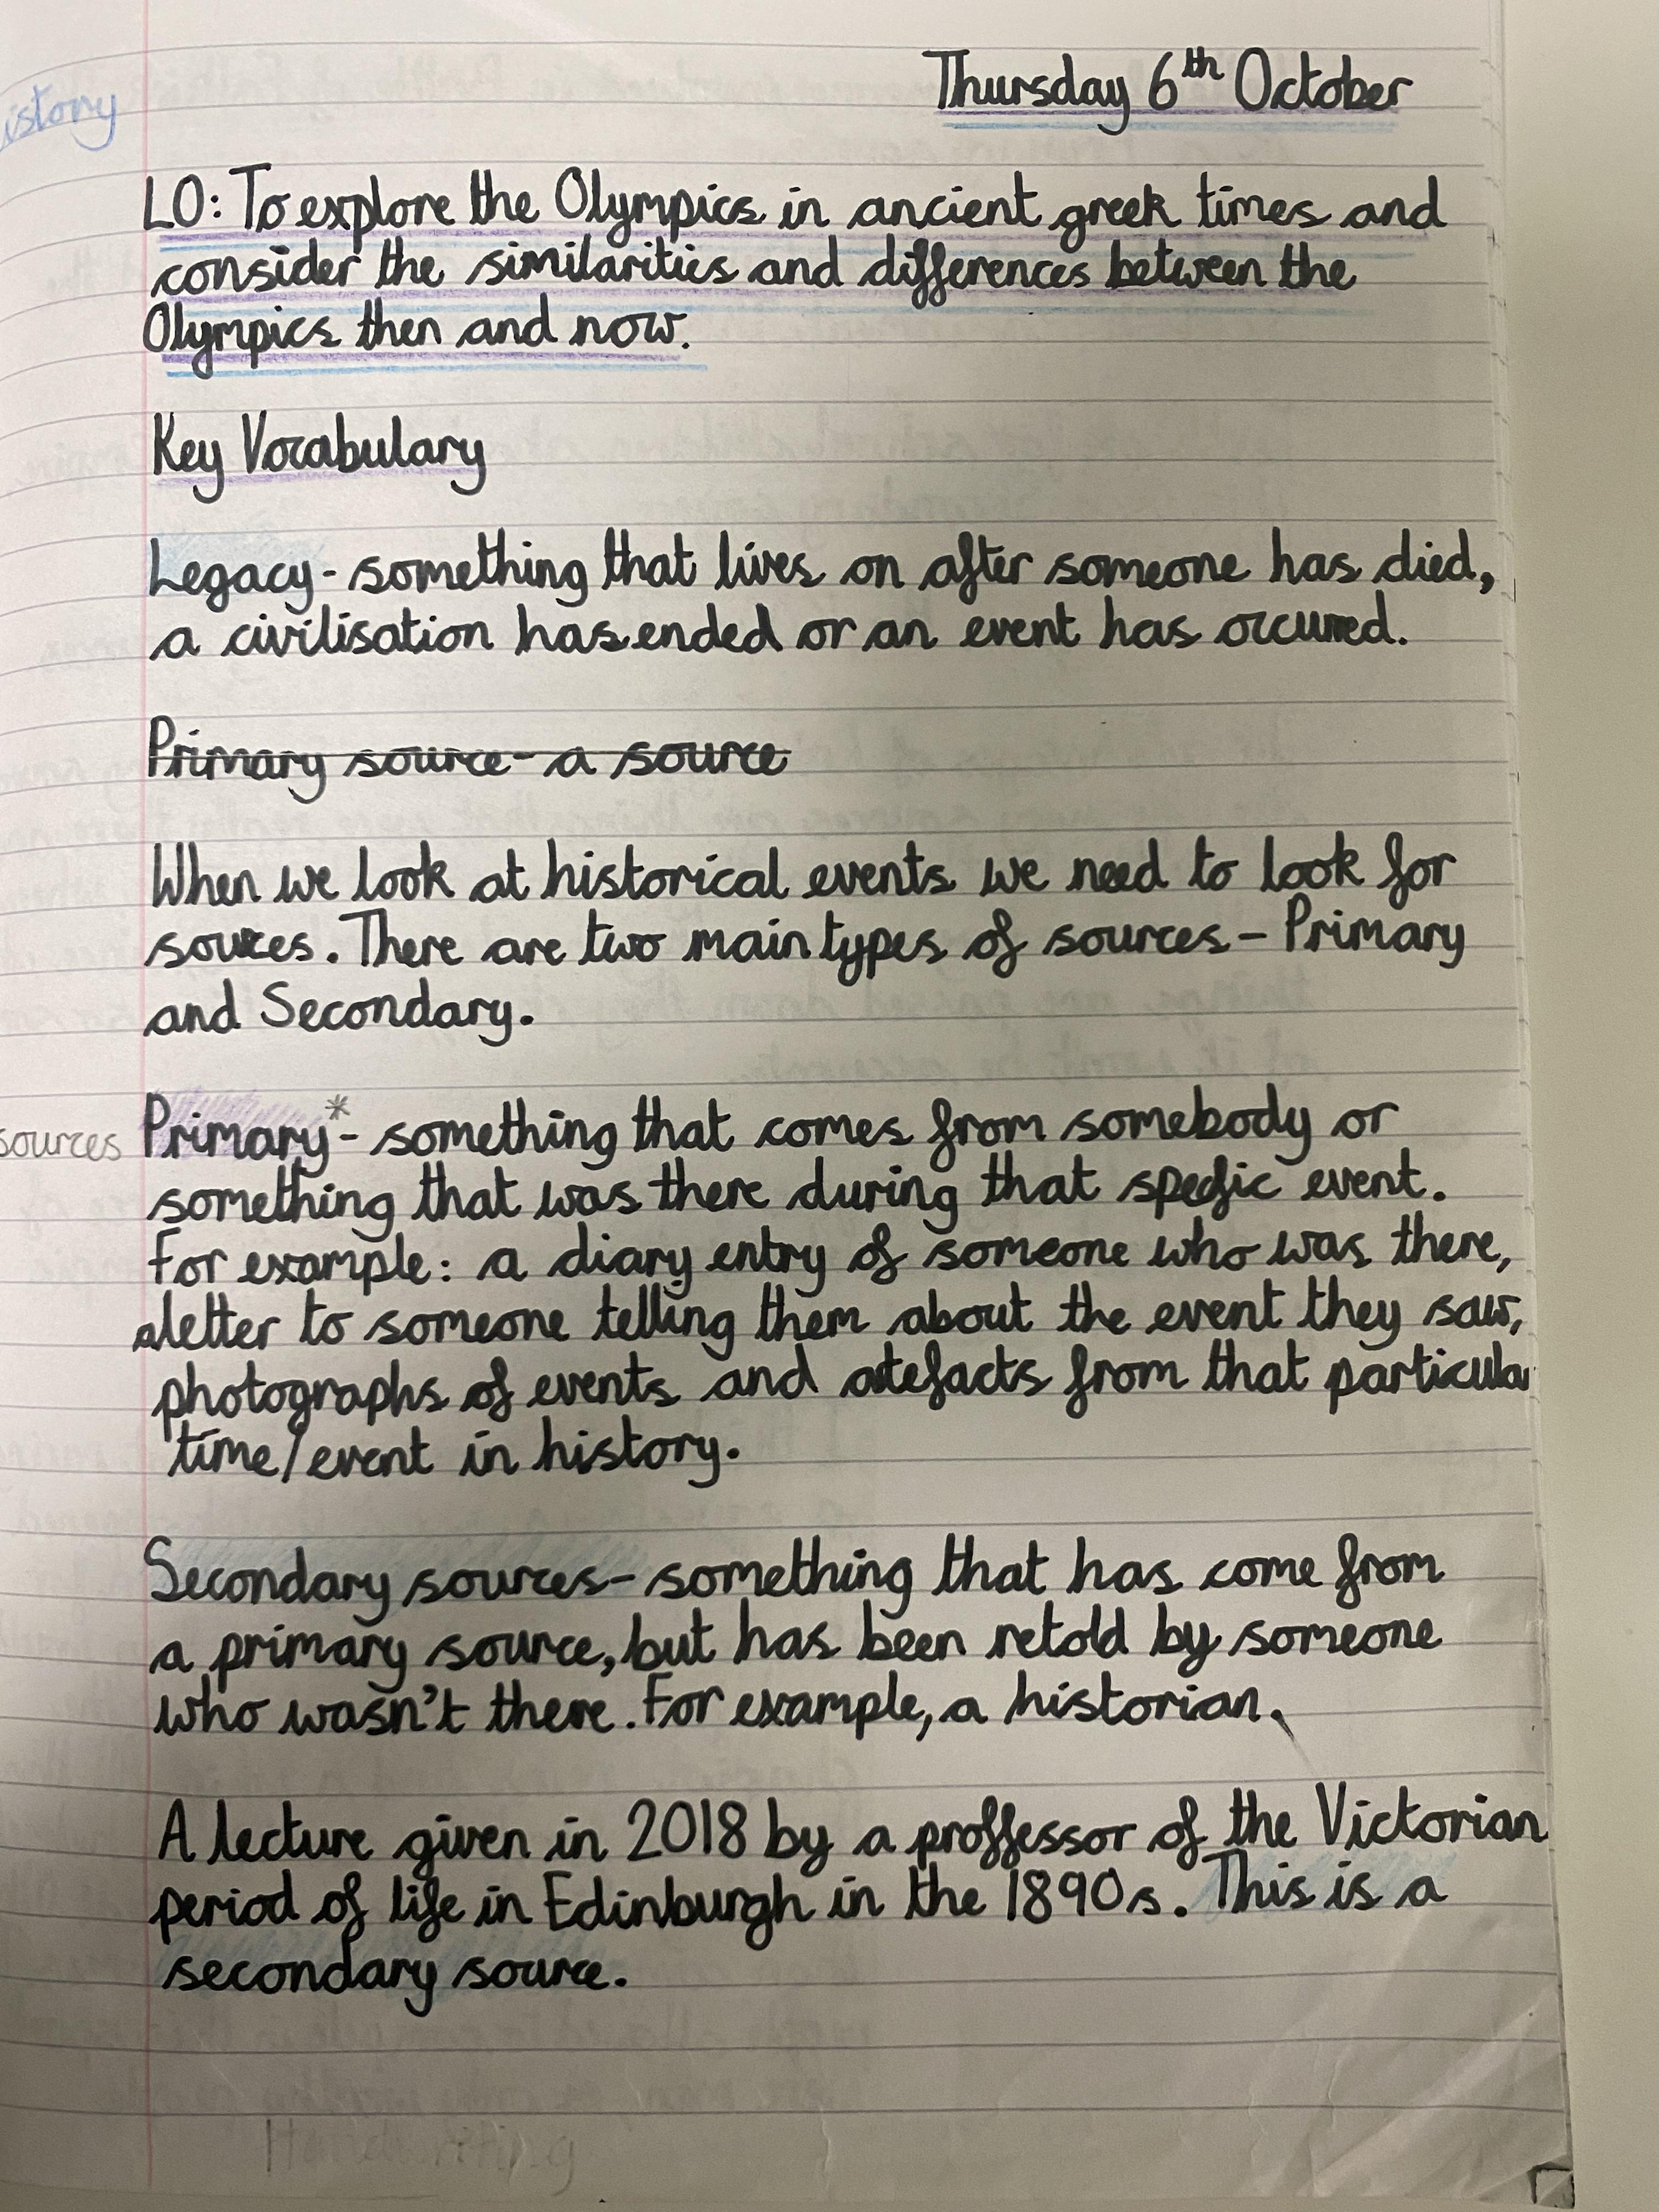 Thursday 6th October
istory
LO: To explore the Olympics in ancient greek times and
consider the similarities and differences between the
Olympics then and now.
Key Vocabulary
Legacy - something that lives on after someone has died,
a civilisation has ended or an event has occurred.
Primary source - a source
When we look at historical events we need to look for
sources. There are two main types of sources - Primary
and Secondary.
sources Primary* - something that comes from somebody or
something that was there during that specific event.
For example: a diary entry of someone who was there,
a letter to someone telling them about the event they saw,
photographs of events and artefacts from that particular
time/event in history.
Secondary sources - something that has come from
a primary source, but has been retold by someone
who wasn't there. For example, a historian.
A lecture given in 2018 by a proffessor of the Victorian
period of life in Edinburgh in the 1890s. This is a
secondary source.
Handwriting